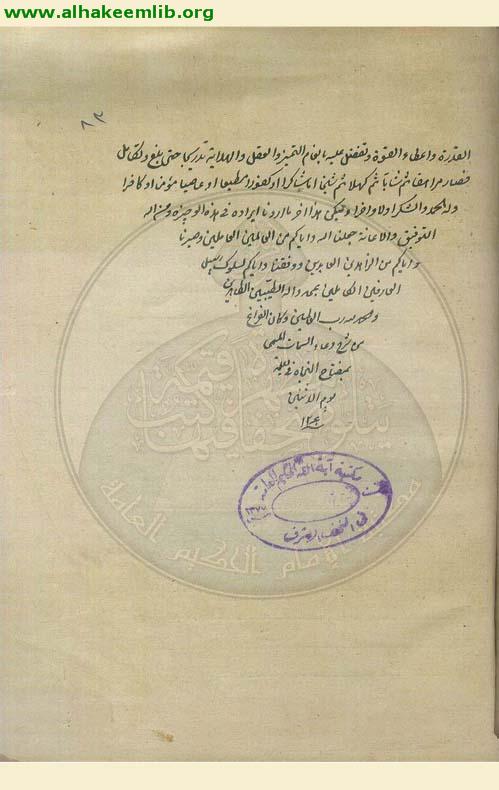 www.alhakeemlib.org
٨٣
القدرة واعطاء القوة وتفضل عليه بانعام التميز والعقل والهداية تدريجا حتى بلغ وتكامل
فصار مراهقا ثم شابا ثم كهلا ثم شيخا اما شاكرا او كفورا مطيعا او عاصيا مؤمنا او كافرا
وله الحمد والشكر اولا واخرا وليكن هذا اخر ما اردنا ايراده في هذه الوجيزة ومن الله
التوفيق والاعانة جعلنا الله واياكم من العالمين العاملين وصيرنا
واياكم من الزاهدين العابدين ووفقنا واياكم لسلوك سبيل
العارفين الكاملين بمحمد واله الطيبين الطاهرين
والحمد لله رب العالمين وكان الفراغ
من شرح دعاء السمات المسمى
بمفتاح النجاة في ليلة
يوم الاثنين
مكتبة آية الله الحكيم العامة
في النجف الاشرف
مكتبة الإمام الحكيم العامة